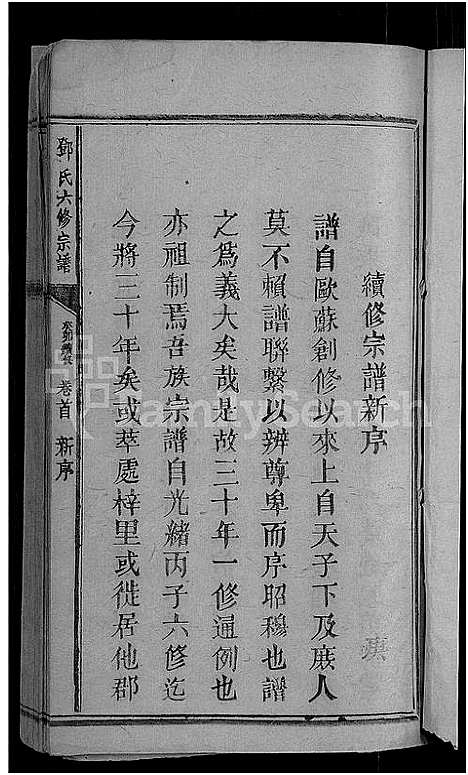 續修宗譜新序
譜自歐蘇創修以來上自天子下及庶人
莫不賴譜聯繫以辨尊卑而序昭穆也譜
之爲義大矣哉是故三十年一修通例也
亦祖制焉吾族宗譜自光緒丙子六修迄
今將三十年矣或萃處梓里或徙居他郡
鄧氏六修宗譜
卷首 新序
FamilySearch